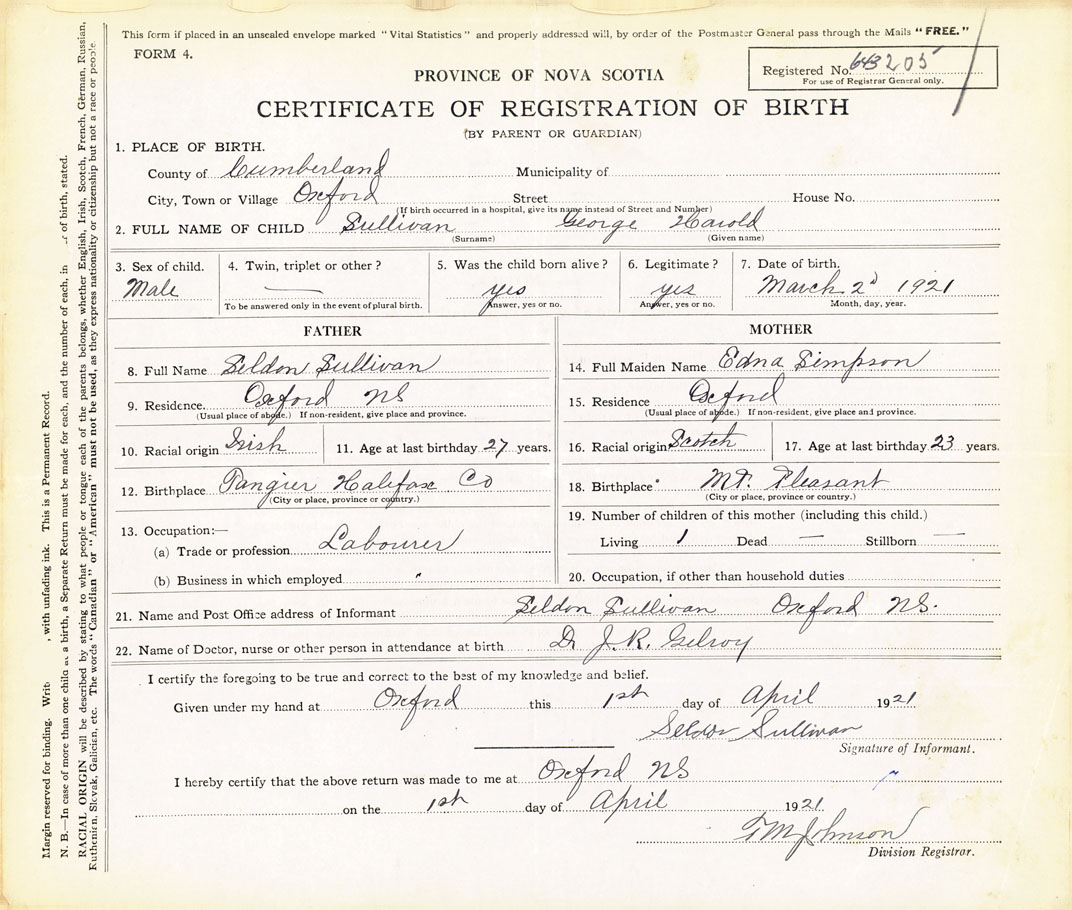 This form if placed in an unsealed envelope marked "Vital Statistics" and properly addressed will, by order of the Postmaster General pass through the Mails "FREE."
FORM 4.
Registered No. 643205
For use of Registrar General only.
PROVINCE OF NOVA SCOTIA
CERTIFICATE OF REGISTRATION OF BIRTH
(BY PARENT OR GUARDIAN)
1. PLACE OF BIRTH.
County of Cumberland Municipality of
City, Town or Village Oxford Street House No.
(If birth occurred in a hospital, give its name instead of Street and Number)
2. FULL NAME OF CHILD Sullivan George Harold
(Surname) (Given name)
3. Sex of child. 4. Twin, triplet or other? 5. Was the child born alive? 6. Legitimate? 7. Date of birth.
Male — yes yes March 2d 1921
To be answered only in the event of plural birth. Answer, yes or no. Answer, yes or no. Month, day, year.
FATHER MOTHER
8. Full Name Seldon Sullivan 14. Full Maiden Name Edna Simpson
9. Residence. Oxford NS 15. Residence Oxford
(Usual place of abode.) If non-resident, give place and province. (Usual place of abode.) If non-resident, give place and province.
10. Racial origin Irish 11. Age at last birthday 27 years. 16. Racial origin Scotch 17. Age at last birthday 23 years.
12. Birthplace Tangier Halifax Co 18. Birthplace Mt. Pleasant
(City or place, province or country.) (City or place, province or country.)
13. Occupation:— 19. Number of children of this mother (including this child.)
(a) Trade or profession Labourer Living 1 Dead — Stillborn —
(b) Business in which employed " 20. Occupation, if other than household duties
21. Name and Post Office address of Informant Seldon Sullivan Oxford NS.
22. Name of Doctor, nurse or other person in attendance at birth Dr J. R. Gilroy
I certify the foregoing to be true and correct to the best of my knowledge and belief.
Given under my hand at Oxford this 1st day of April 1921
Seldon Sullivan
Signature of Informant.
I hereby certify that the above return was made to me at Oxford NS
on the 1st day of April 1921
Johnson
Division Registrar.
Margin reserved for binding. Writ , with unfading ink. This is a Permanent Record.
N. B.—In case of more than one child at a birth, a Separate Return must be made for each, and the number of each, in of birth, stated.
RACIAL ORIGIN will be described by stating to what people or tongue each of the parents belongs, whether English, Irish, Scotch, French, German, Russian,
Ruthenian, Slovak, Galician, etc. The words "Canadian" or "American" must not be used, as they express nationality or citizenship but not a race or people